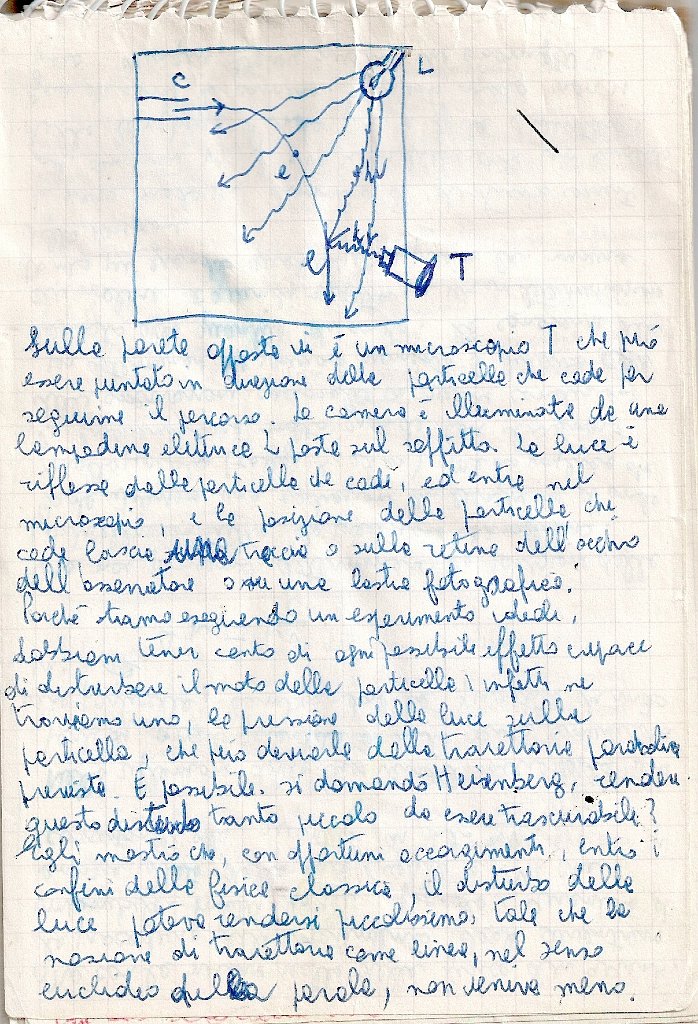 C
L
e
e
T
Sulla parete opposta vi è un microscopio T che può
essere puntato in direzione della particella che cade per
seguirne il percorso. La camera è illuminata da una
lampadina elettrica L posta sul soffitto. La luce è
riflessa dalla particella che cade, ed entra nel
microscopio, e la posizione della particella che
cade, lascia una traccia o sulla retina dell'occhio
dell'osservatore o su una lastra fotografica.
Poiché stiamo eseguendo un esperimento ideale,
dobbiam tener conto di ogni possibile effetto capace
di disturbare il moto della particella; infatti ne
troviamo uno, la pressione della luce sulla
particella, che può deviarla dalla traiettoria parabolica
prevista. È possibile, si domandò Heisenberg, rendere
questo disturbo tanto piccolo da essere trascurabile?
Egli mostrò che, con opportuni accorgimenti, entro i
confini della fisica classica, il disturbo della
luce poteva rendersi piccolissimo, tale che la
nozione di traiettoria come linea, nel senso
euclideo della parola, non veniva meno.